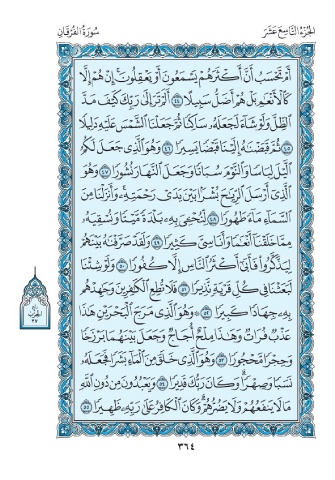 الجزء التاسع عشر
سورة الفرقان
أَمْ تَحْسَبُ أَنَّ أَكْثَرَهُمْ يَسْمَعُونَ أَوْ يَعْقِلُونَ إِنْ هُمْ إِلَّا
كَالْأَنْعَٰمِ بَلْ هُمْ أَضَلُّ سَبِيلًا ٤٤ أَلَمْ تَرَ إِلَىٰ رَبِّكَ كَيْفَ مَدَّ
ٱلظِّلَّ وَلَوْ شَآءَ لَجَعَلَهُۥ سَاكِنًا ثُمَّ جَعَلْنَا ٱلشَّمْسَ عَلَيْهِ دَلِيلًا
٤٥ ثُمَّ قَبَضْنَٰهُ إِلَيْنَا قَبْضًا يَسِيرًا ٤٦ وَهُوَ ٱلَّذِى جَعَلَ لَكُمُ
ٱلَّيْلَ لِبَاسًا وَٱلنَّوْمَ سُبَاتًا وَجَعَلَ ٱلنَّهَارَ نُشُورًا ٤٧ وَهُوَ
ٱلَّذِىٓ أَرْسَلَ ٱلرِّيَٰحَ بُشْرًۢا بَيْنَ يَدَىْ رَحْمَتِهِۦ وَأَنزَلْنَا مِنَ
ٱلسَّمَآءِ مَآءً طَهُورًا ٤٨ لِّنُحْۦِىَ بِهِۦ بَلْدَةً مَّيْتًا وَنُسْقِيَهُۥ
مِمَّا خَلَقْنَآ أَنْعَٰمًا وَأَنَاسِىَّ كَثِيرًا ٤٩ وَلَقَدْ صَرَّفْنَٰهُ بَيْنَهُمْ
لِيَذَّكَّرُوا۟ فَأَبَىٰٓ أَكْثَرُ ٱلنَّاسِ إِلَّا كُفُورًا ٥٠ وَلَوْ شِئْنَا
لَبَعَثْنَا فِى كُلِّ قَرْيَةٍ نَّذِيرًا ٥١ فَلَا تُطِعِ ٱلْكَٰفِرِينَ وَجَٰهِدْهُم
بِهِۦ جِهَادًا كَبِيرًا ٥٢ وَهُوَ ٱلَّذِى مَرَجَ ٱلْبَحْرَيْنِ هَٰذَا
عَذْبٌ فُرَاتٌ وَهَٰذَا مِلْحٌ أُجَاجٌ وَجَعَلَ بَيْنَهُمَا بَرْزَخًا
وَحِجْرًا مَّحْجُورًا ٥٣ وَهُوَ ٱلَّذِى خَلَقَ مِنَ ٱلْمَآءِ بَشَرًا فَجَعَلَهُۥ
نَسَبًا وَصِهْرًا وَكَانَ رَبُّكَ قَدِيرًا ٥٤ وَيَعْبُدُونَ مِن دُونِ ٱللَّهِ
مَا لَا يَنفَعُهُمْ وَلَا يَضُرُّهُمْ وَكَانَ ٱلْكَافِرُ عَلَىٰ رَبِّهِۦ ظَهِيرًا ٥٥
الحزب
٣٧
٣٦٤